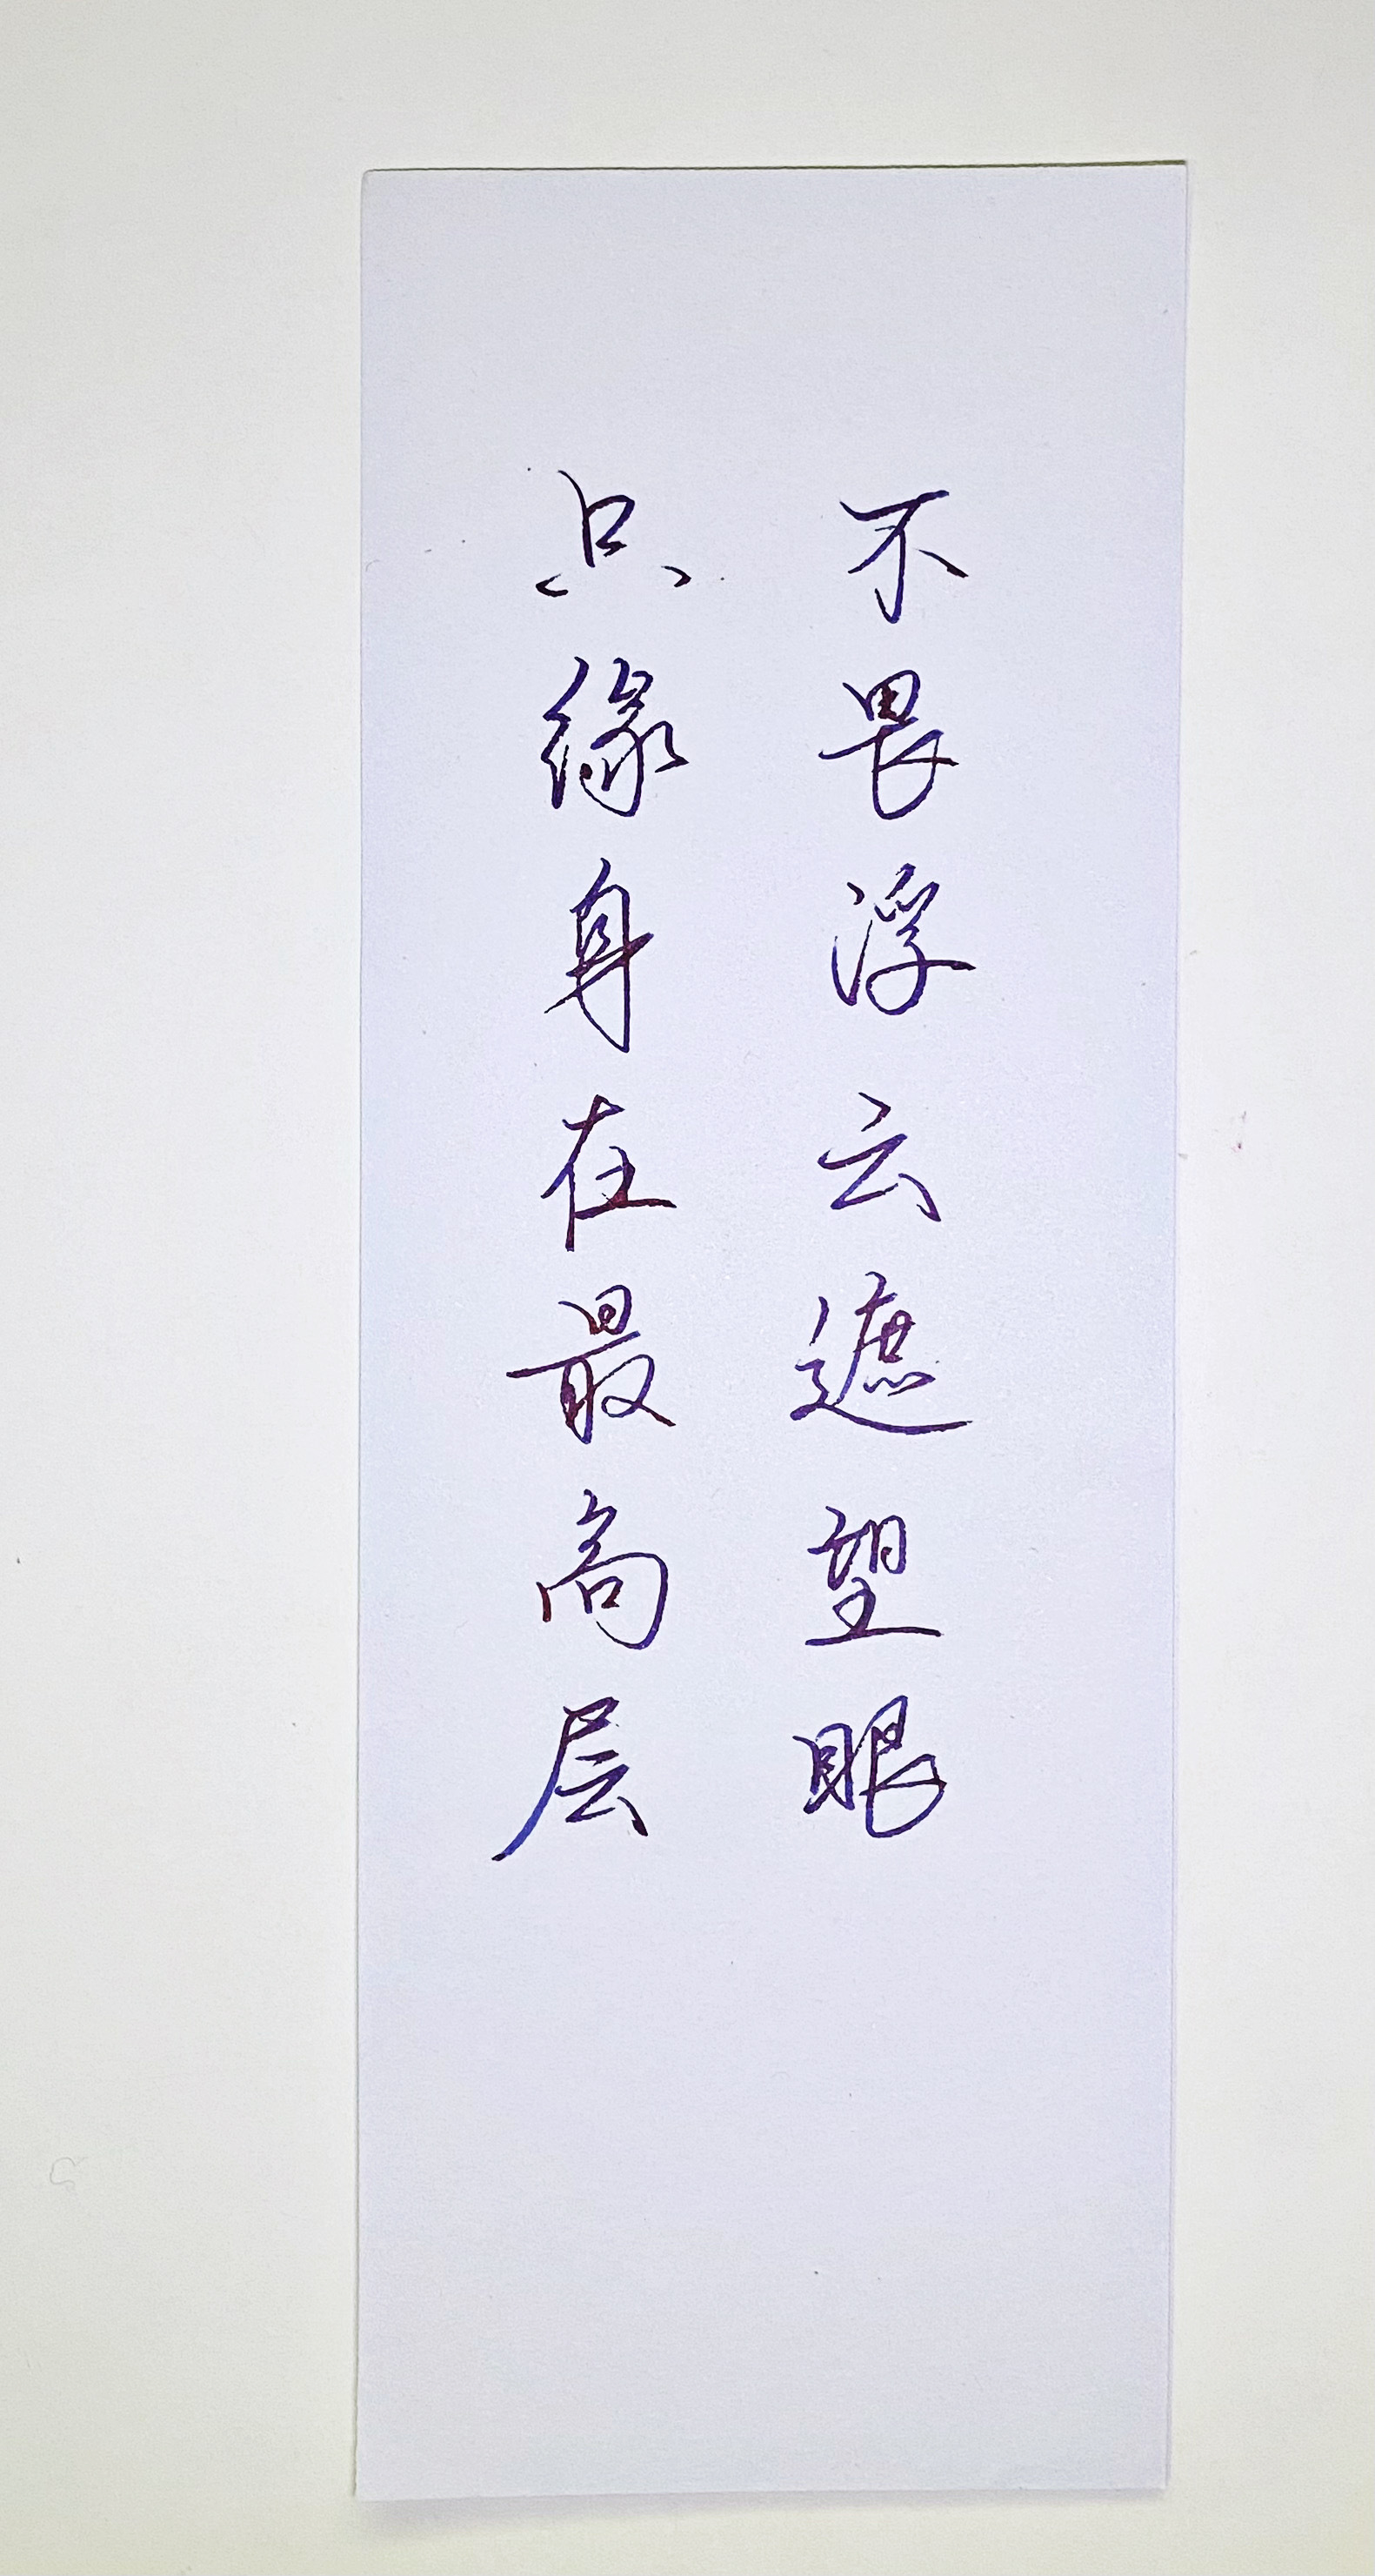 不畏浮云遮望眼
只缘身在最高层